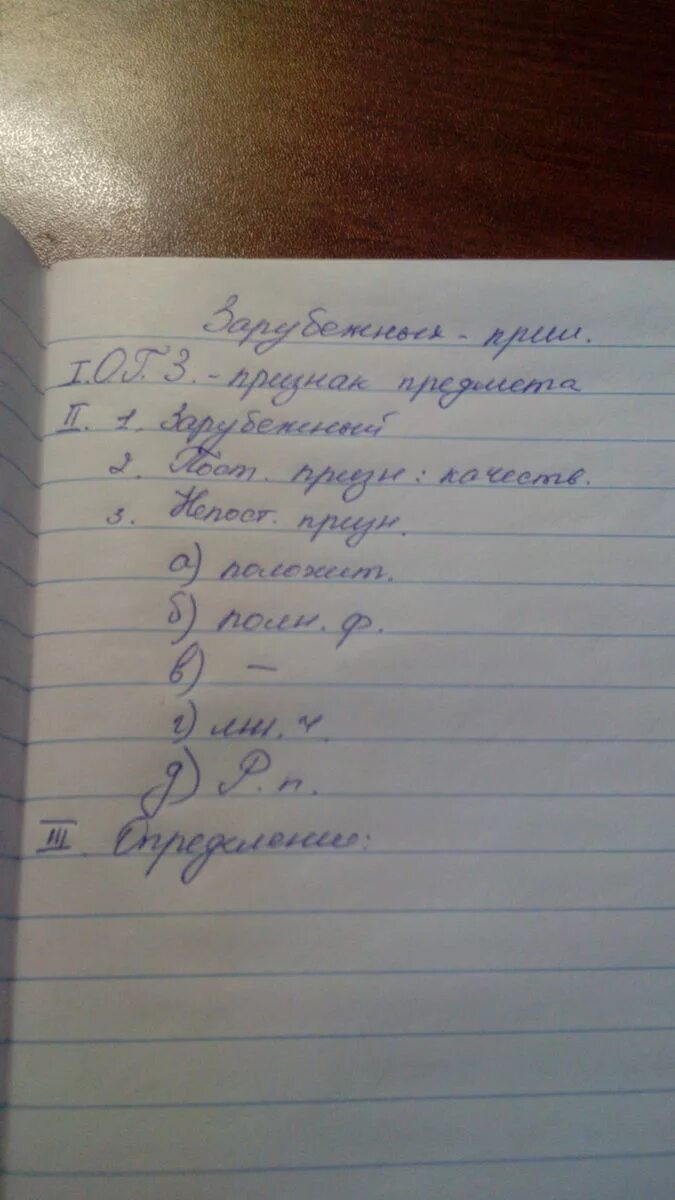 Зарубежных - прил.
I. О.Г.З. - признак предмета
II. 1. Зарубежный
2. Пост. призн: качеств.
3. Непост. призн.
а) положит.
б) полн. ф.
в) —
г) мн. ч.
д) Р. п.
III. Определение: